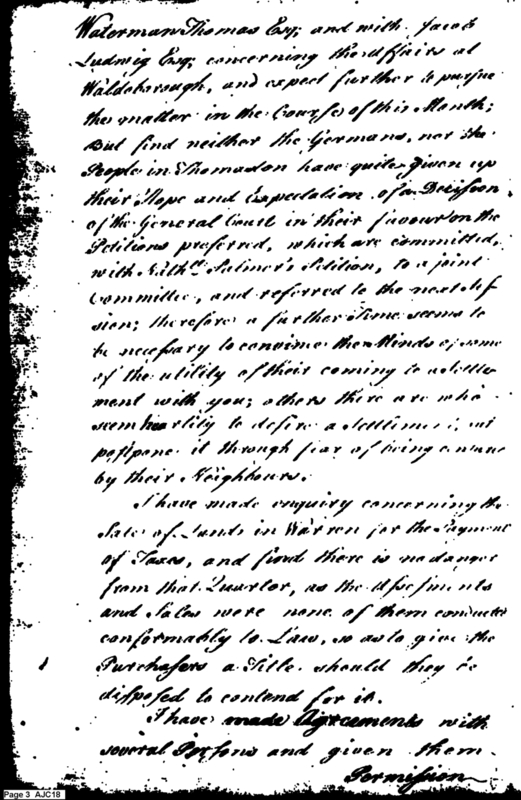 Waterman Thomas Esq; and with Jacob
Ludwig Esq; concerning the Affairs at
Waldoborough, and expect further to pursue
the matter in the Course of this Month;
But find neither the Germans, nor the
People in Thomaston have quite given up
their Hope and Expectation of a Decision
of the General Court in their favour on the
Petitions preferred, which are committed,
with Nath.ll Palmer's Petition, to a joint
Committee, and referred to the next Ses-
sion; therefore a further Time seems to
be necessary to convince the Minds of some
of the utility of their coming to a settle-
ment with you; others there are who
seem heartily to desire a Settlement, but
postpone it through fear of being
by their Neighbours.
I have made enquiry concerning the
Sales of Lands in Warren for the Payment
of Taxes, and find there is no danger
from that Quarter, as the Assessments
and Sales were none of them conducted
conformably to Law, so as to give the
Purchasers a Title should they be
disposed to contend for it.
I have made Agreements with
several Persons and given them
Permission
Page 3 AJC18